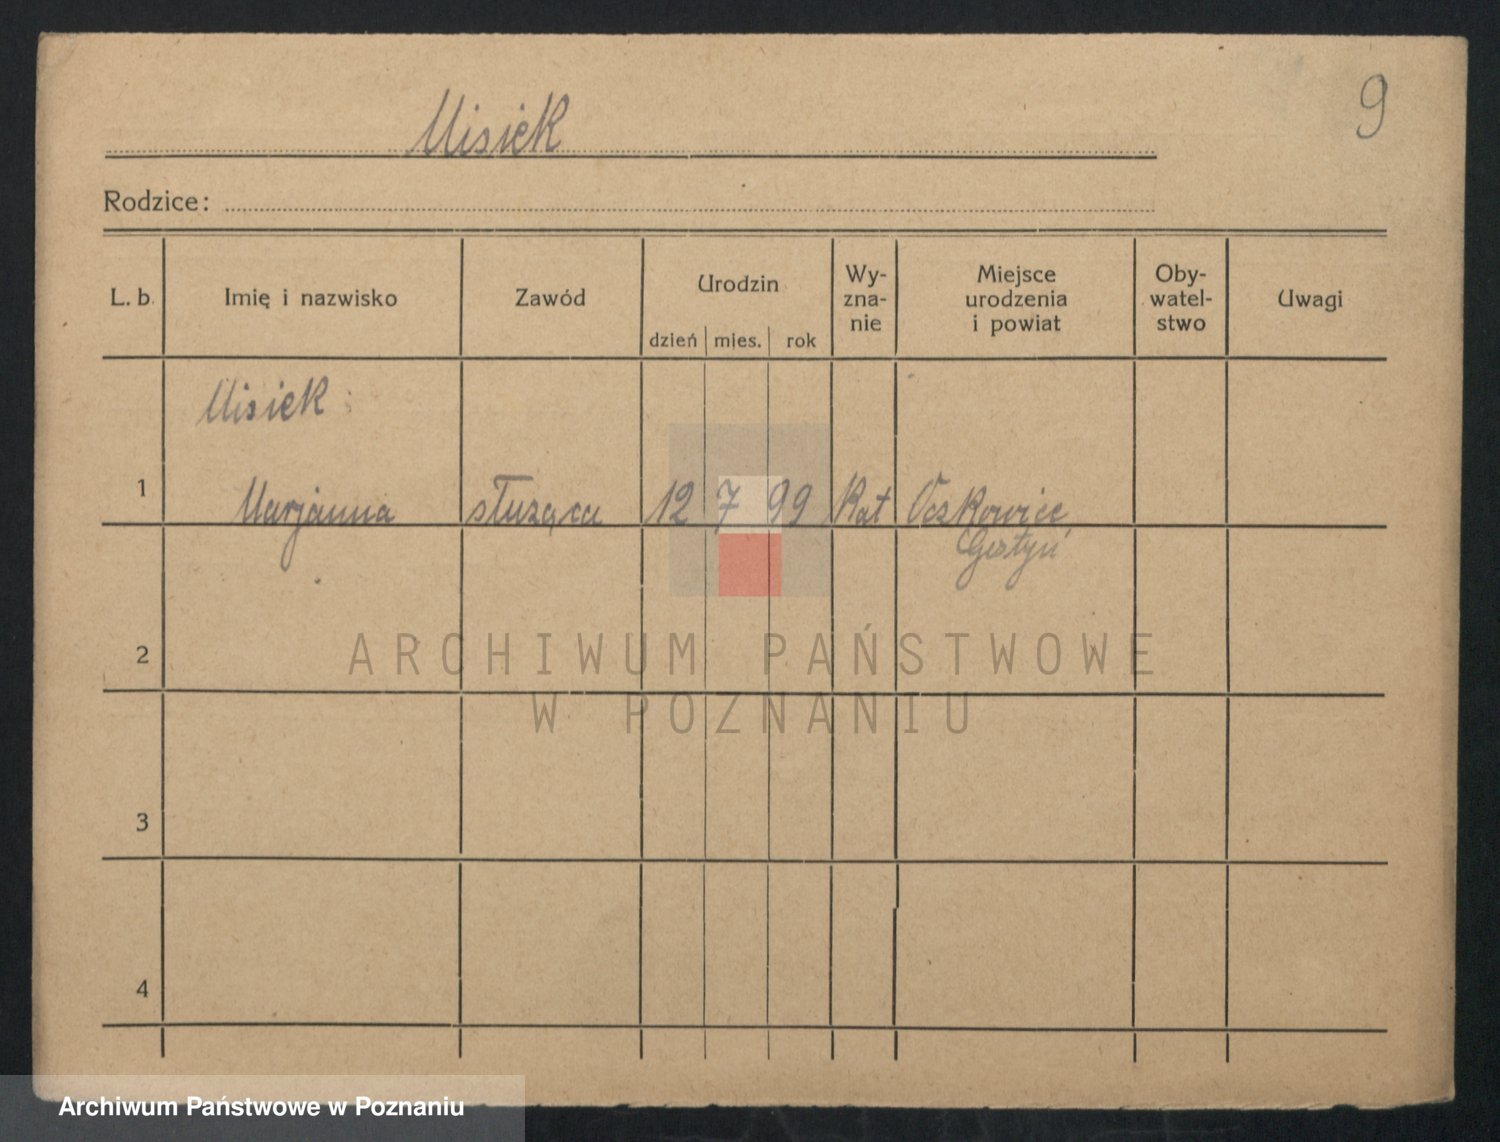 Misiek
9
Rodzice:
L. b. Imię i nazwisko Zawód Urodzin dzień mies. rok Wy-zna-nie Miejsce urodzenia i powiat Oby-watel-stwo Uwagi
Misiek
1 Marjanna służąca 12 7 99 Kat Oczkowice
Gostyń
2
ARCHIWUM PAŃSTWOWE
W POZNANIU
3
4
Archiwum Państwowe w Poznaniu